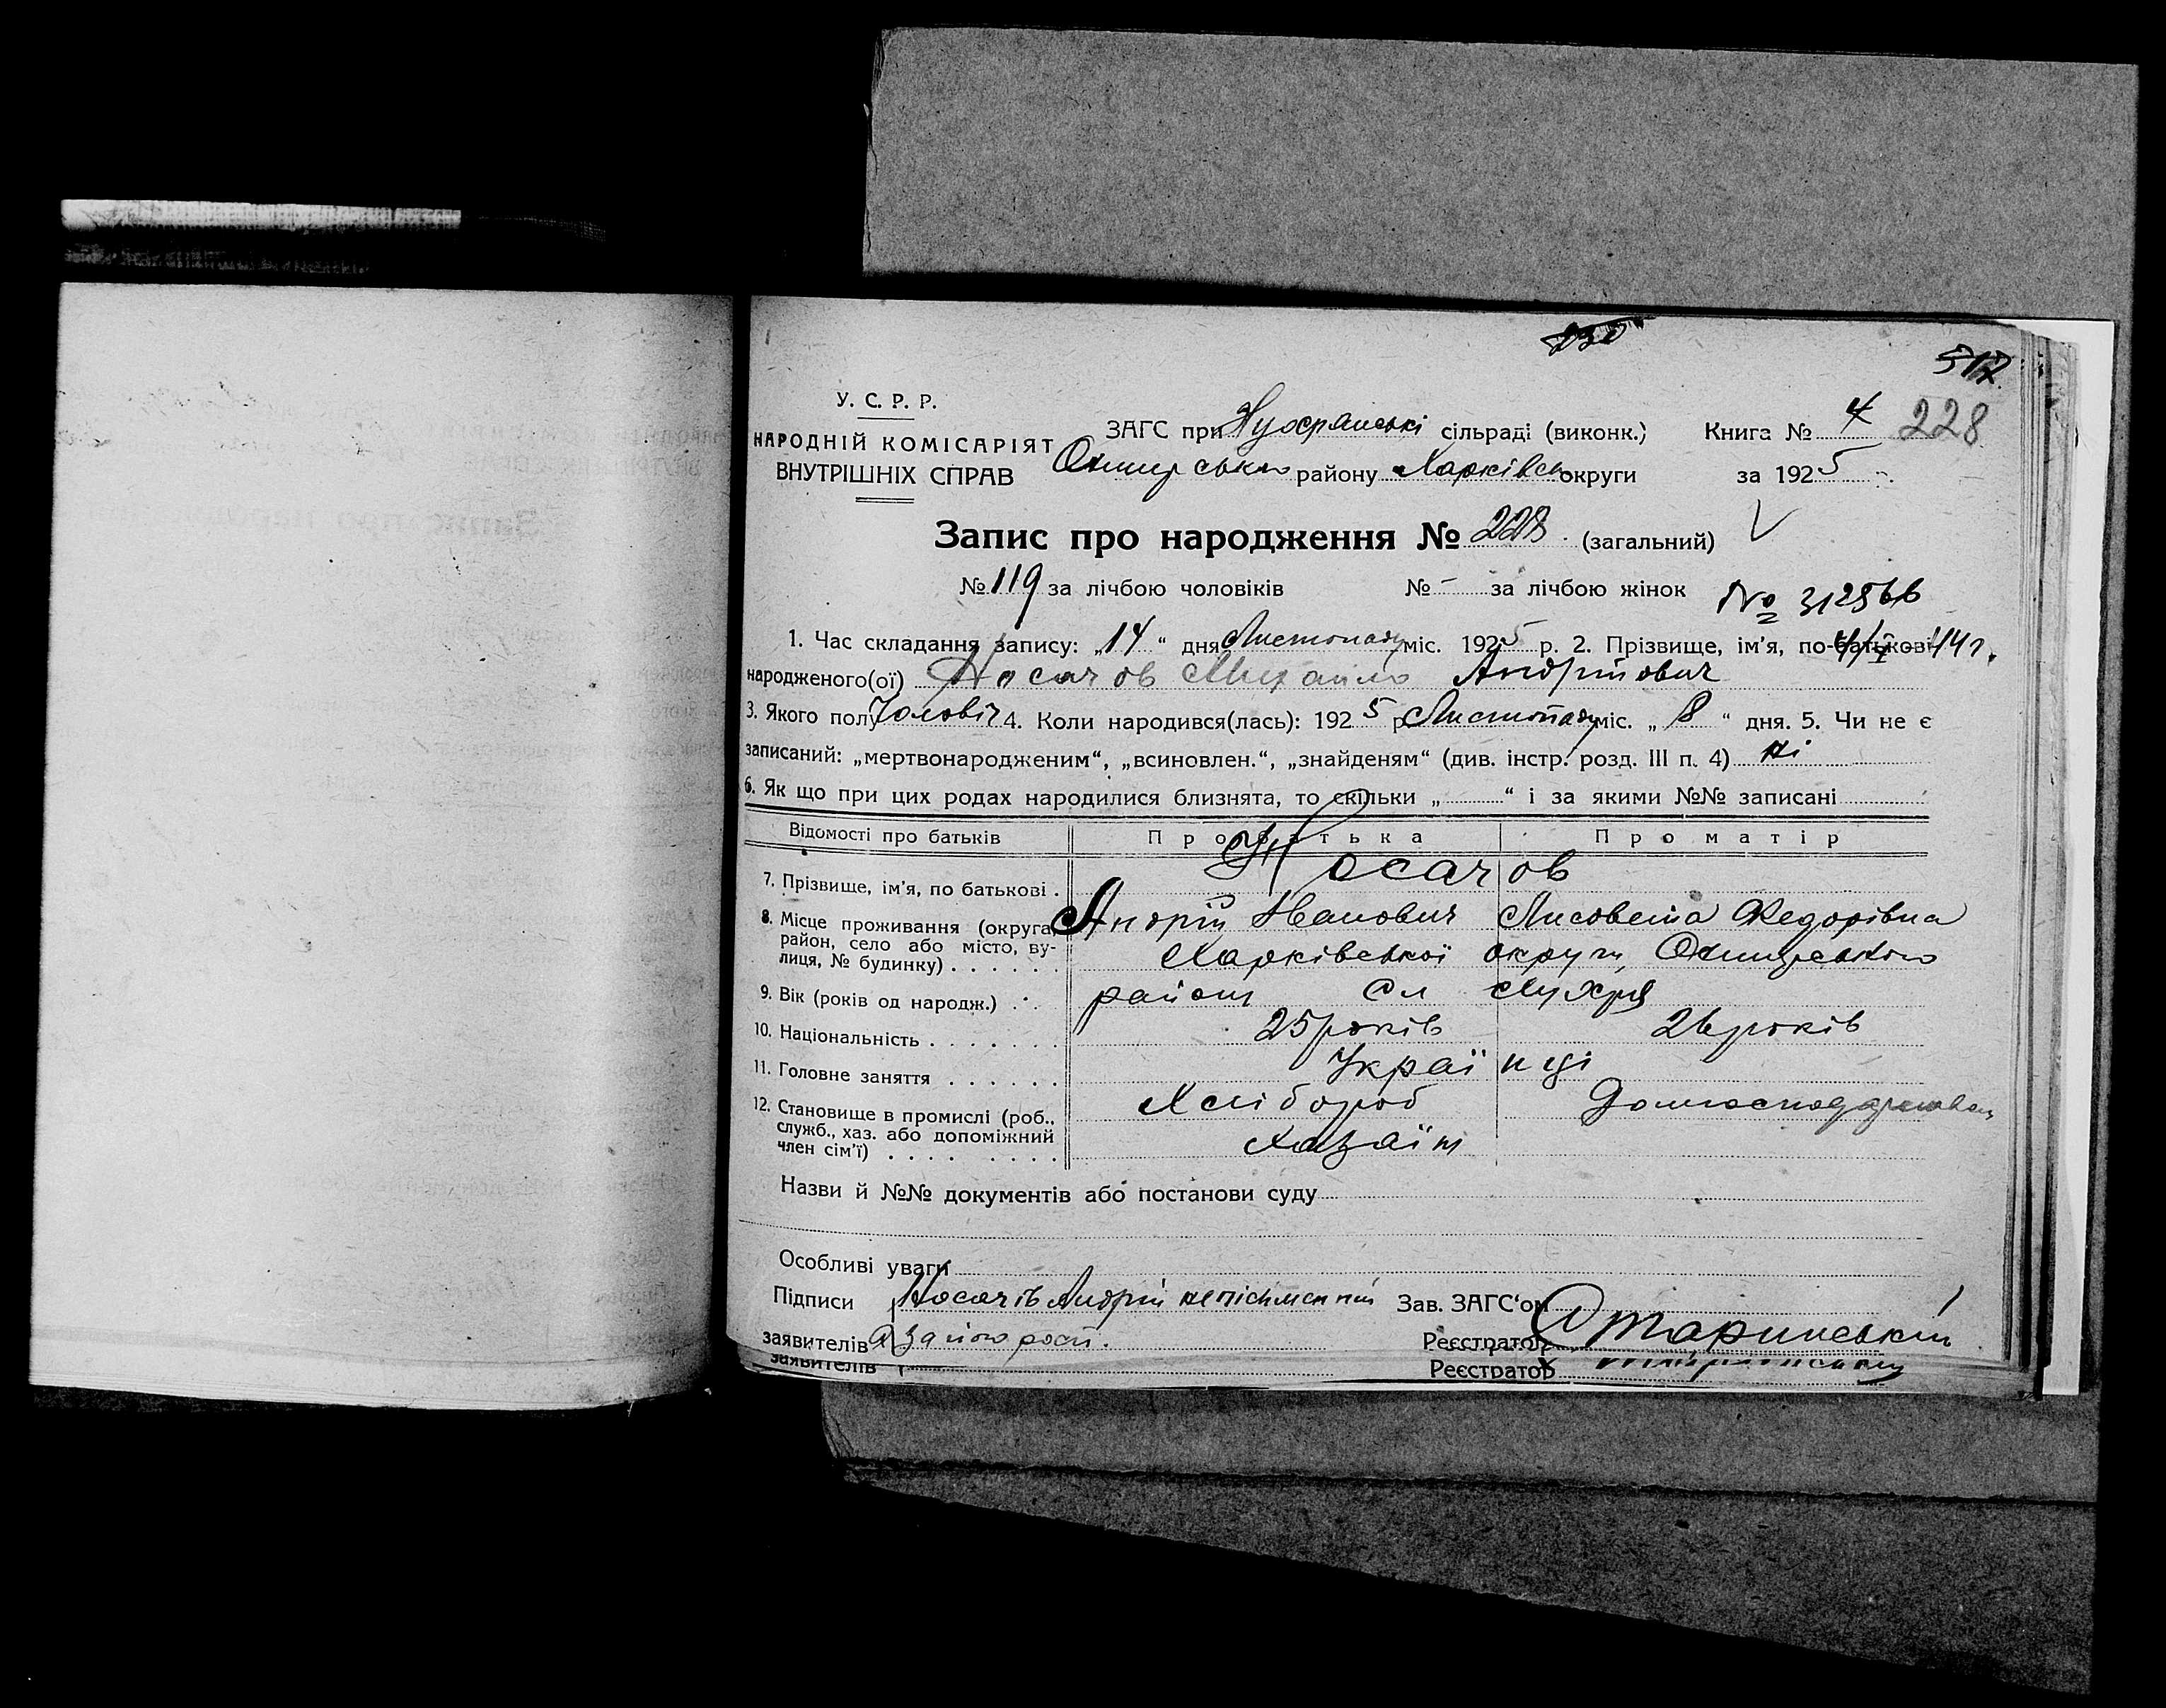 517
У. С. Р. Р.
НАРОДНІЙ КОМІСАРІЯТ
ВНУТРІШНІХ СПРАВ
ЗАГС при сільраді (виконк.)
району Харківсь округи
Книга № 4 228
за 1925
Запис про народження № 228. (загальний)
№ 119 за лічбою чоловіків № - за лічбою жінок
№ 312566
1. Час складання запису: „14“ дня Листопаду міс. 1925 р. 2. Прізвище, ім'я, по-батькові 44 г.
народженого(ої) Носачов Михайло Андрійович
3. Якого полу Чоловіч 4. Коли народився(лась): 1925 р Листопаду міс. „8“ дня. 5. Чи не є
записаний: „мертвонародженим“, „всиновлен.“, „знайденям“ (див. інстр. розд. III п. 4) ні
6. Як що при цих родах народилися близнята, то скільки „ “ і за якими №№ записані
Відомості про батьків Про батька Про матір
7. Прізвище, ім'я, по батькові . Носачов
Андрій Іванович Лисовета Федорівна
8. Місце проживання (округа, район, село або місто, вулиця, № будинку) . . . . . . Харківської округи,
району Сл
9. Вік (років од народж.) . . 25 років 26 років
10. Національність . . . . . . . Українці
11. Головне заняття . . . . . . Хлібороб
12. Становище в промислі (роб., служб., хаз. або допоміжний член сім'ї) . . . . . . . . Хазаїн
Назви й №№ документів або постанови суду
Особливі уваги
Підписи Носачів Андрій непісьменний Зав. ЗАГС'ом
заявителів а за його росп. Реєстратор
заявителів Реєстратор